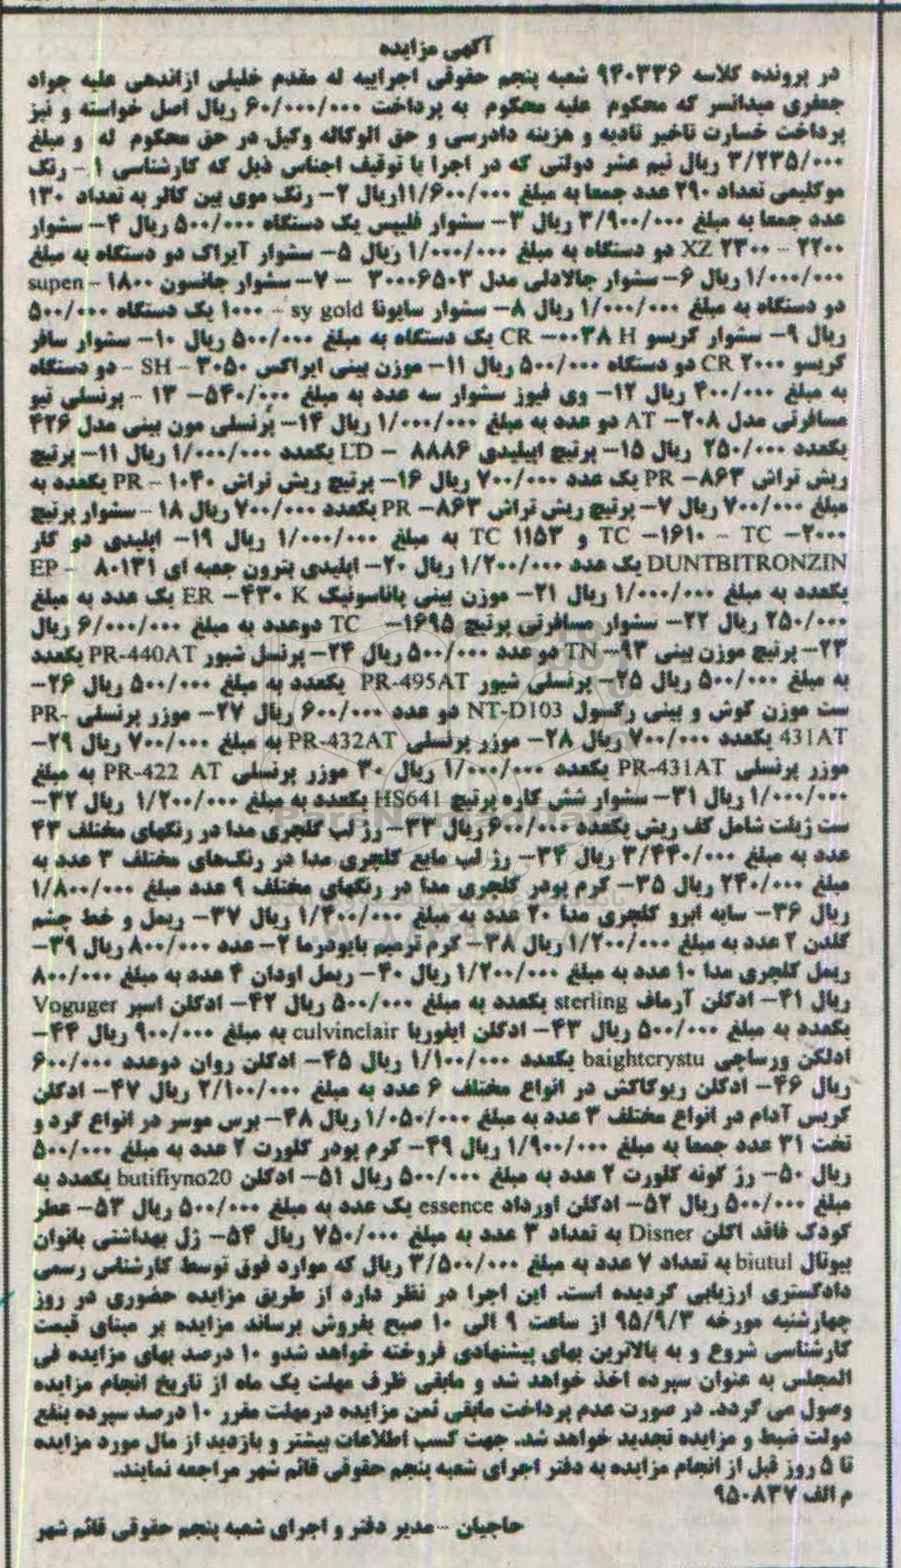 آگهی مزایده
در پرونده کلاسه ۹۴۰۳۳۶ شعبه پنجم حقوقی اجراییه له مقدم خلیلی ازاندهی علیه جواد
جعفری میدانسر که محکوم علیه محکوم به پرداخت ۶۰/۰۰۰/۰۰۰ ریال اصل خواسته و نیز
پرداخت خسارت تاخیر تادیه و هزینه دادرسی و حق الوکاله وکیل در حق محکوم له و مبلغ
۳/۲۳۵/۰۰۰ ریال نیم عشر دولتی که در اجرا با توقیف اجناس ذیل که کارشناسی ۱ - رنگ
موکلیمی تعداد ۲۹۰ عدد جمعا به مبلغ ۱۱/۶۰۰/۰۰۰ریال ۲- رنگ موی بین کالر به تعداد ۱۳۰
عدد جمعا به مبلغ ۳/۹۰۰/۰۰۰ ریال ۳- سشوار فلیپس یک دستگاه ۵۰۰/۰۰۰ ریال ۴- سشوار
۲۲۰۰ - ۲۳۰۰ XZ دو دستگاه به مبلغ ۱/۰۰۰/۰۰۰ ریال ۵- سشوار آیراک دو دستگاه به مبلغ
۱/۰۰۰/۰۰۰ ریال ۶- سشوار جالادلی مدل ۳۰۰۰۶۵۰۳ - ۷- سشوار جانسون ۱۸۰۰ - supen
دو دستگاه به مبلغ ۱/۰۰۰/۰۰۰ ریال ۸- سشوار سایونا sy gold - ۱۰۰۰ یک دستگاه ۵۰۰/۰۰۰
ریال ۹- سشوار کریسو CR -۰۰۳۸ H یک دستگاه به مبلغ ۵۰۰/۰۰۰ ریال ۱۰- سشوار سافر
کریسو CR ۲۰۰۰ دو دستگاه ۵۰۰/۰۰۰ ریال ۱۱- موزن بینی ایراکس ۳۰۵۰ - SH - دو دستگاه
به مبلغ ۴۰۰/۰۰۰ ریال ۱۲- وی فیوز سشوار سه عدد به مبلغ ۵۴۰/۰۰۰- ۱۳ - پرنسلی تیو
مسافرتی مدل ۲۰۸- AT دو عدد به مبلغ ۱/۰۰۰/۰۰۰ ریال ۱۴- پرنسلی مون بینی مدل ۴۲۶
یکعدد ۲۵۰/۰۰۰ ریال ۱۵- پرتیچ اپیلیدی ۸۸۸۶ - LD یکعدد ۱/۰۰۰/۰۰۰ ریال ۱۱- پرتیچ
ریش تراش ۸۶۳- PR یک عدد ۷۰۰/۰۰۰ ریال ۱۶- پرتیچ ریش تراش ۱۰۴۰ - PR یکعدد به
مبلغ ۷۰۰/۰۰۰ ریال ۷- پرتیچ ریش تراش ۸۶۳- PR یکعدد ۷۰۰/۰۰۰ ریال ۱۸ - سشوار پرتیچ
۲۰۰۰- TC - ۱۶۱۰- TC و ۱۱۵۳ TC به مبلغ ۱/۰۰۰/۰۰۰ ریال ۱۹- اپلیدی دو کار
DUNTBITRONZIN یک عدد ۱/۲۰۰/۰۰۰ ریال ۲۰- اپلیدی بترون جعبه ای ۸۰۱۳۱ - EP
یکعدد به مبلغ ۱/۰۰۰/۰۰۰ ریال ۲۱- موزن بینی پاناسونیک ER -۴۳۰ K یک عدد به مبلغ
۲۵۰/۰۰۰ ریال ۲۲- سشوار مسافرتی پرتیچ ۱۶۹۵- TC دوعدد به مبلغ ۶/۰۰۰/۰۰۰ ریال
۲۳- پرتیچ موزن بینی ۹۳- TN دو عدد ۵۰۰/۰۰۰ ریال ۲۴- پرنسل شیور PR-440AT یکعدد
به مبلغ ۵۰۰/۰۰۰ ریال ۲۵- پرنسلی شیور PR-495AT یکعدد به مبلغ ۵۰۰/۰۰۰ ریال ۲۶-
ست موزن گوش و بینی رکسول NT-D103 دو عدد ۶۰۰/۰۰۰ ریال ۲۷- موزر پرنسلی PR-
431AT یکعدد ۷۰۰/۰۰۰ ریال ۲۸- موزر پرنسلی PR-432AT به مبلغ ۷۰۰/۰۰۰ ریال ۲۹-
موزر پرنسلی PR-431AT یکعدد ۱/۰۰۰/۰۰۰ ریال ۳۰ موزر پرنسلی PR-422 AT به مبلغ
۱/۰۰۰/۰۰۰ ریال ۳۱- سشوار شش کاره پرتیچ HS641 یکعدد به مبلغ ۱/۲۰۰/۰۰۰ ریال ۳۲-
ست ژیلت شامل کف ریش یکعدد ۶۰۰/۰۰۰ ریال ۳۳- رژ لب کلچری مدا در رنگهای مختلف ۴۳
عدد به مبلغ ۳/۴۴۰/۰۰۰ ریال ۳۴- رژ لب مایع کلچری مدا در رنگ‌های مختلف ۳ عدد به
مبلغ ۲۴۰/۰۰۰ ریال ۳۵- کرم پودر کلچری مدا در رنگهای مختلف ۹ عدد مبلغ ۱/۸۰۰/۰۰۰
ریال ۳۶- سایه ابرو کلچری مدا ۲۰ عدد به مبلغ ۱/۴۰۰/۰۰۰ ریال ۳۷- ریمل و خط چشم
گلدن ۲ عدد به مبلغ ۱/۲۰۰/۰۰۰ ریال ۳۸- کرم ترمیم بایودرما ۲- عدد ۸۰۰/۰۰۰ ریال ۳۹-
ریمل کلچری مدا ۱۰ عدد به مبلغ ۱/۲۰۰/۰۰۰ ریال ۴۰- ریمل اودان ۴ عدد به مبلغ ۸۰۰/۰۰۰
ریال ۴۱- ادکلن آرماف sterling یکعدد به مبلغ ۵۰۰/۰۰۰ ریال ۴۲- ادکلن اسپر Voguger
یکعدد به مبلغ ۵۰۰/۰۰۰ ریال ۴۳- ادکلن ایفوریا culvinclair به مبلغ ۹۰۰/۰۰۰ ریال ۴۴-
ادلکن ورساچی baightcrystu یکعدد ۱/۱۰۰/۰۰۰ ریال ۴۵- ادکلن روان دوعدد ۶۰۰/۰۰۰
ریال ۴۶- ادکلن ریوکاکش در انواع مختلف ۶ عدد به مبلغ ۲/۱۰۰/۰۰۰ ریال ۴۷- ادکلن
کریس آدام در انواع مختلف ۳ عدد به مبلغ ۱/۰۵۰/۰۰۰ ریال ۴۸- برس موسر در انواع گرد و
تخت ۳۱ عدد جمعا به مبلغ ۱/۹۰۰/۰۰۰ ریال ۴۹- کرم پودر کلورت ۲ عدد به مبلغ ۵۰۰/۰۰۰
ریال ۵۰- رژ گونه کلورت ۲ عدد به مبلغ ۵۰۰/۰۰۰ ریال ۵۱- ادکلن butifiyno20 یکعدد به
مبلغ ۵۰۰/۰۰۰ ریال ۵۲- ادکلن اورداد essence یک عدد به مبلغ ۵۰۰/۰۰۰ ریال ۵۳- عطر
کودک فاقد اکلن Disner به تعداد ۳ عدد به مبلغ ۷۵۰/۰۰۰ ریال ۵۴- ژل بهداشتی بانوان
بیوتال biutul به تعداد ۷ عدد به مبلغ ۳/۵۰۰/۰۰۰ ریال که موارد فوق توسط کارشناس رسمی
دادگستری ارزیابی گردیده است. این اجرا در نظر دارد از طریق مزایده حضوری در روز
چهارشنبه مورخه ۹۵/۹/۳ از ساعت ۹ الی ۱۰ صبح بفروش برساند مزایده بر مبنای قیمت
کارشناسی شروع و به بالاترین بهای پیشنهادی فروخته خواهد شدو ۱۰ درصد بهای مزایده فی
المجلس به عنوان سپرده اخذ خواهد شد و مابقی ظرف مهلت یک ماه از تاریخ انجام مزایده
وصول می گردد. در صورت عدم پرداخت مابقی ثمن مزایده درمهلت مقرر ۱۰ درصد سپرده بنفع
دولت ضبط و مزایده تجدید خواهد شد. جهت کسب اطلاعات بیشتر و بازدید از مال مورد مزایده
تا ۵ روز قبل از انجام مزایده به دفتر اجرای شعبه پنجم حقوقی قائم شهر مراجعه نمایند.
م الف ۹۵۰۸۳۷
حاجیان - مدیر دفتر و اجرای شعبه پنجم حقوقی قائم شهر